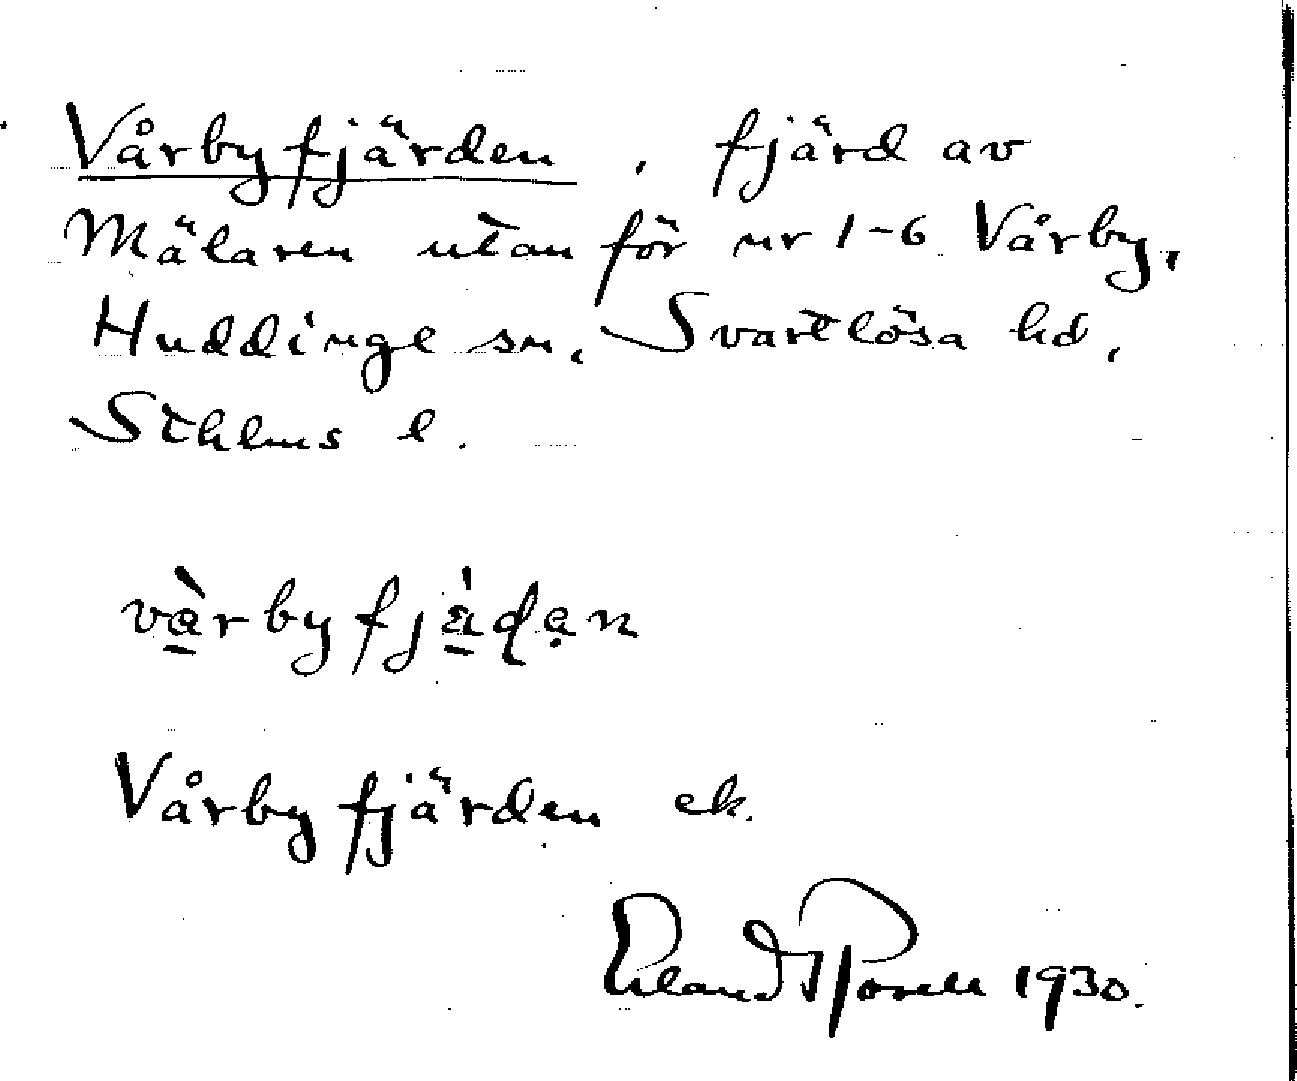 Vårbyfjärden, fjärd av
Mälaren utanför nr 1-6 Vårby,
Huddinge sn, Svartlösa hd,
Sthlms l.
vårbyfjädạn
Vårbyfjärden ek.
Erland Rosell 1930.